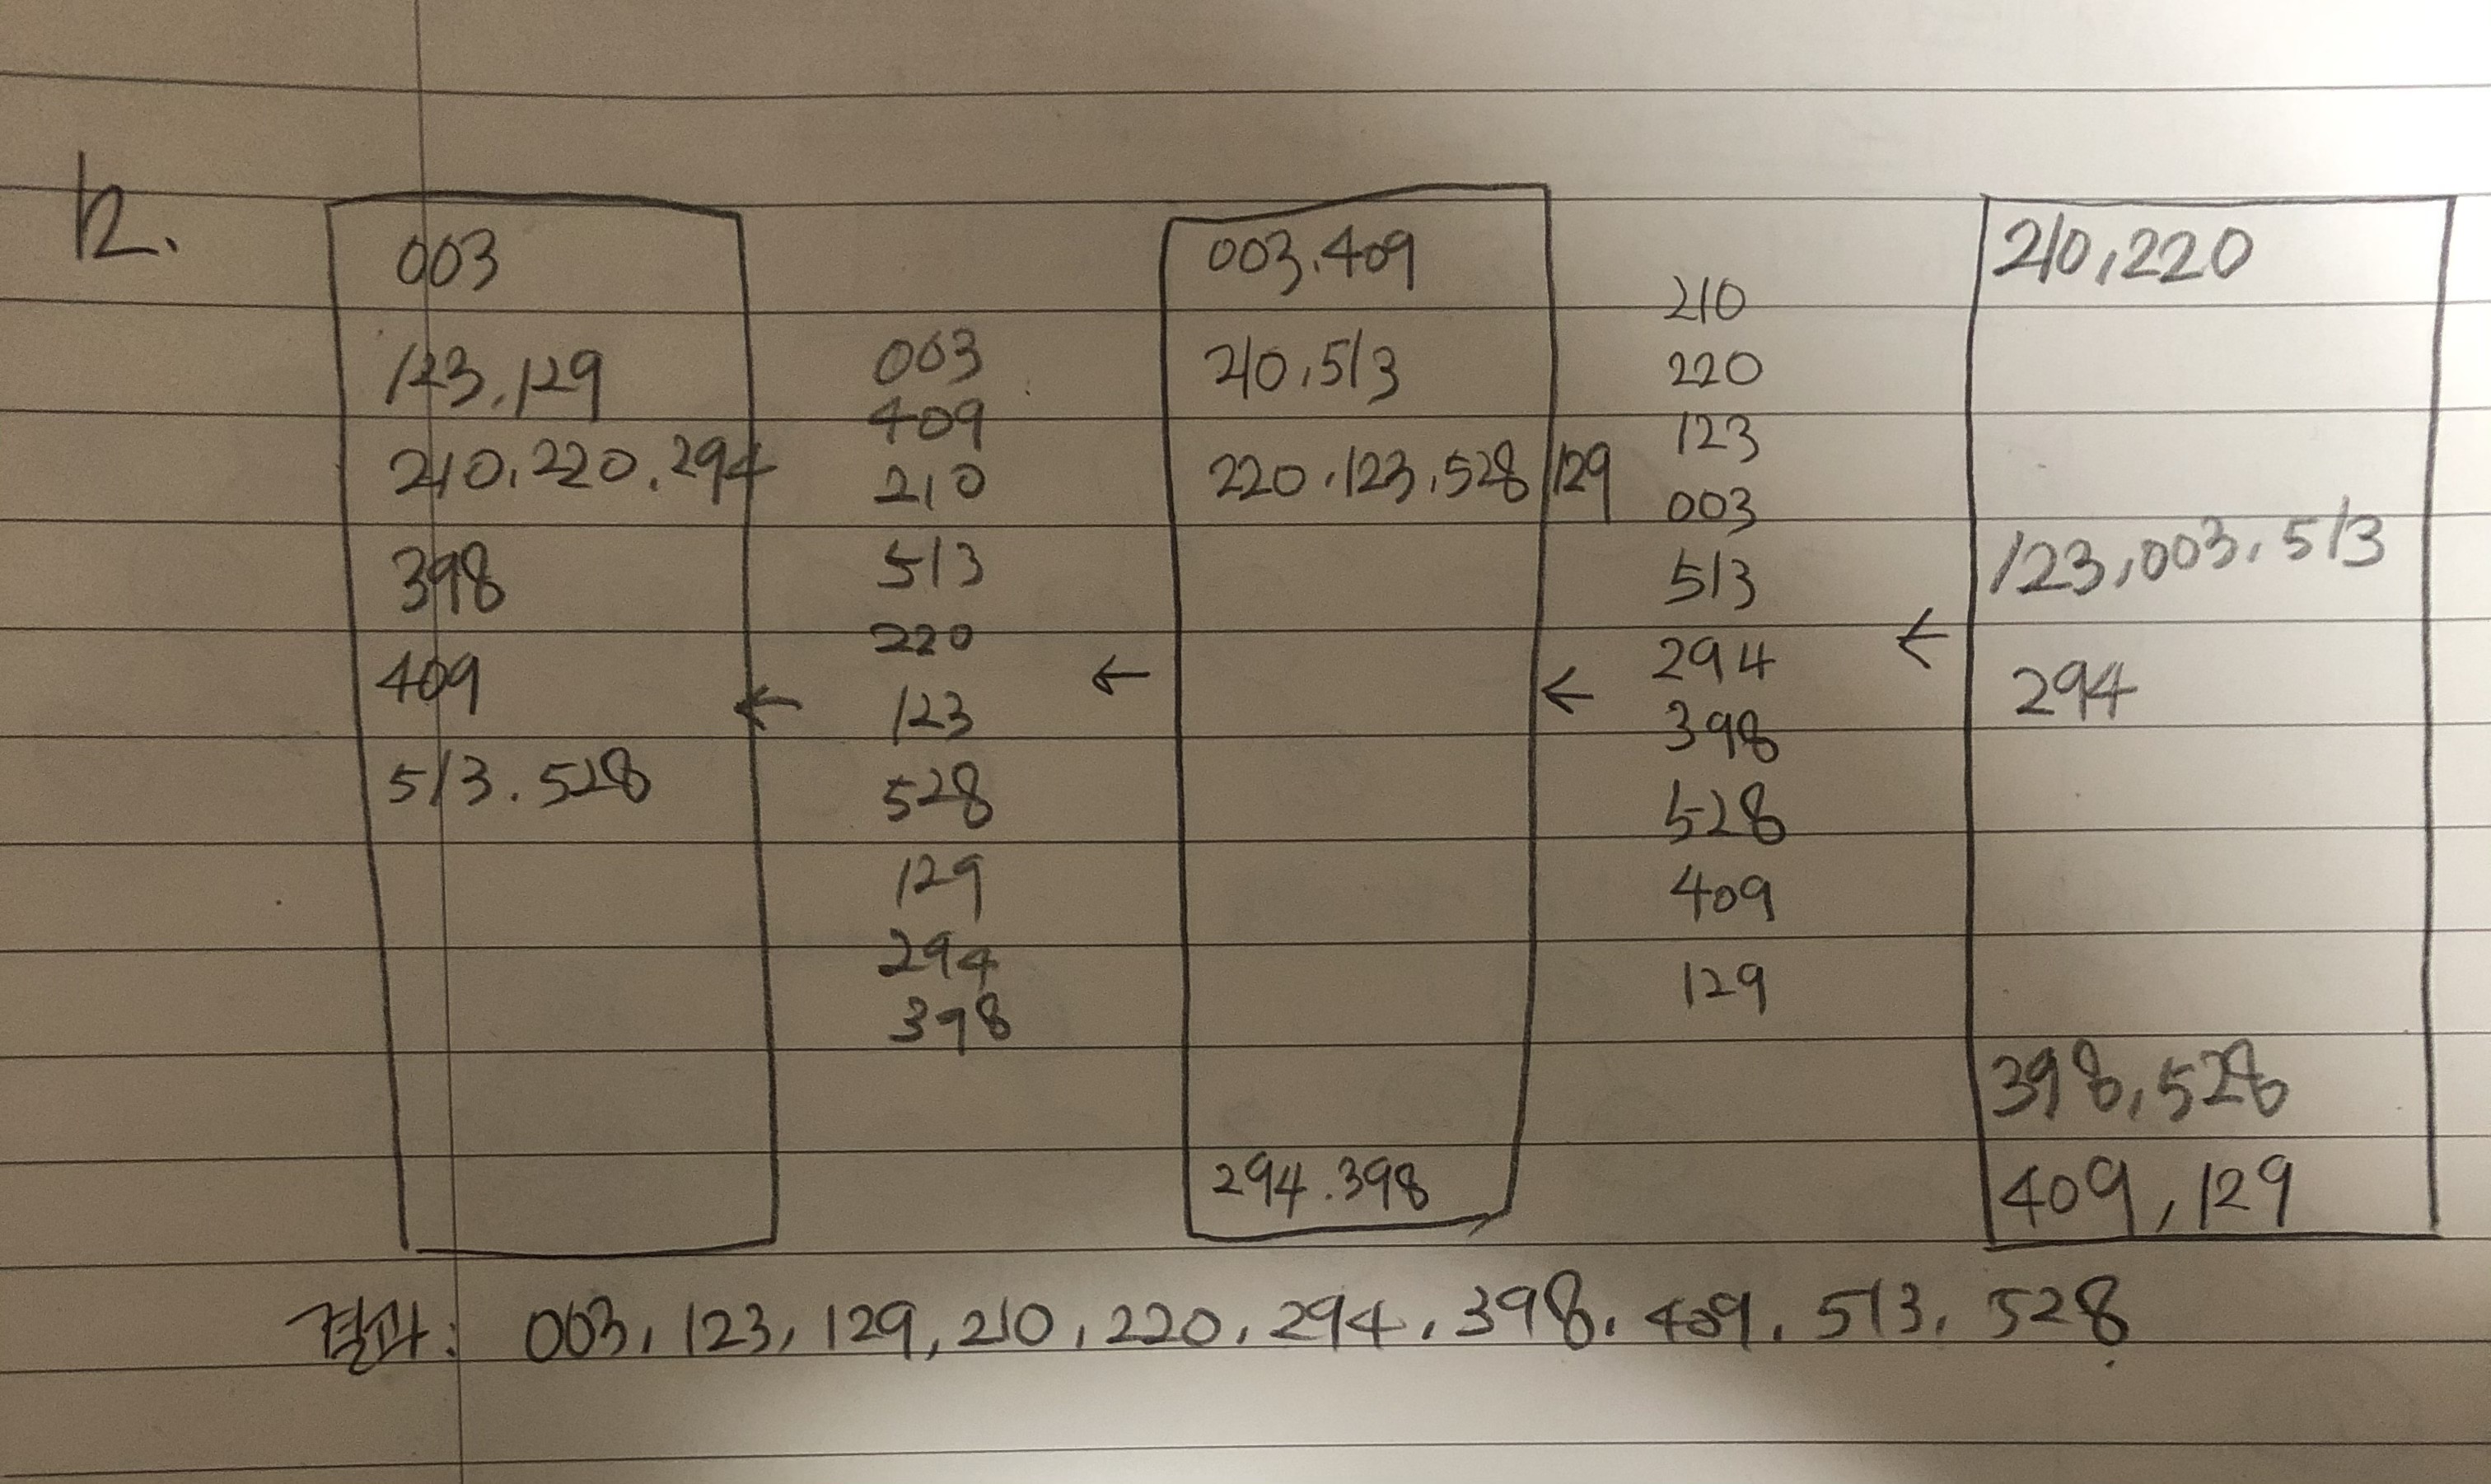 12.
003
123, 129
210, 220, 294
398
409
513. 528
003
409
210
513
220
123
528
129
294
398
003, 409
210, 513
220, 123, 528 129
294. 398
210
220
123
003
513
294
398
528
409
129
210, 220
123, 003, 513
294
398, 528
409, 129
←
←
←
←
결과: 003, 123, 129, 210, 220, 294, 398, 409, 513, 528